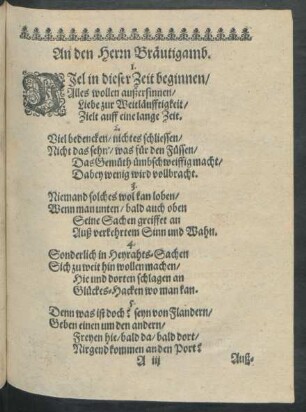 An den Herrn Bräutigamb.
1.
VIel in dieser Zeit beginnen/
Alles wollen außersinnen/
Liebe zur Weitläufftigkeit/
Zielt auff eine lange Zeit.
2.
Viel bedencken/ nichtes schliessen/
Nicht das sehn'/ was für den Füssen/
Das Gemüth ümbschweiffig macht/
Dabey wenig wird vollbracht.
3.
Niemand solches wol kan loben/
Wenn man unten/ bald auch oben
Seine Sachen greiffet an
Auß verkehrtem Sinn und Wahn.
4.
Sonderlich in Heyrahts-Sachen
Sich zu weit hin wollen machen/
Hie und dorten schlagen an
Glückes-Hacken wo man kan.
5.
Denn was iß doch? seyn von Flandern/
Geben einen um den andern/
Freyen hie/ bald da/ bald dort/
Nirgend kommen an den Port?
A iij
Auß-